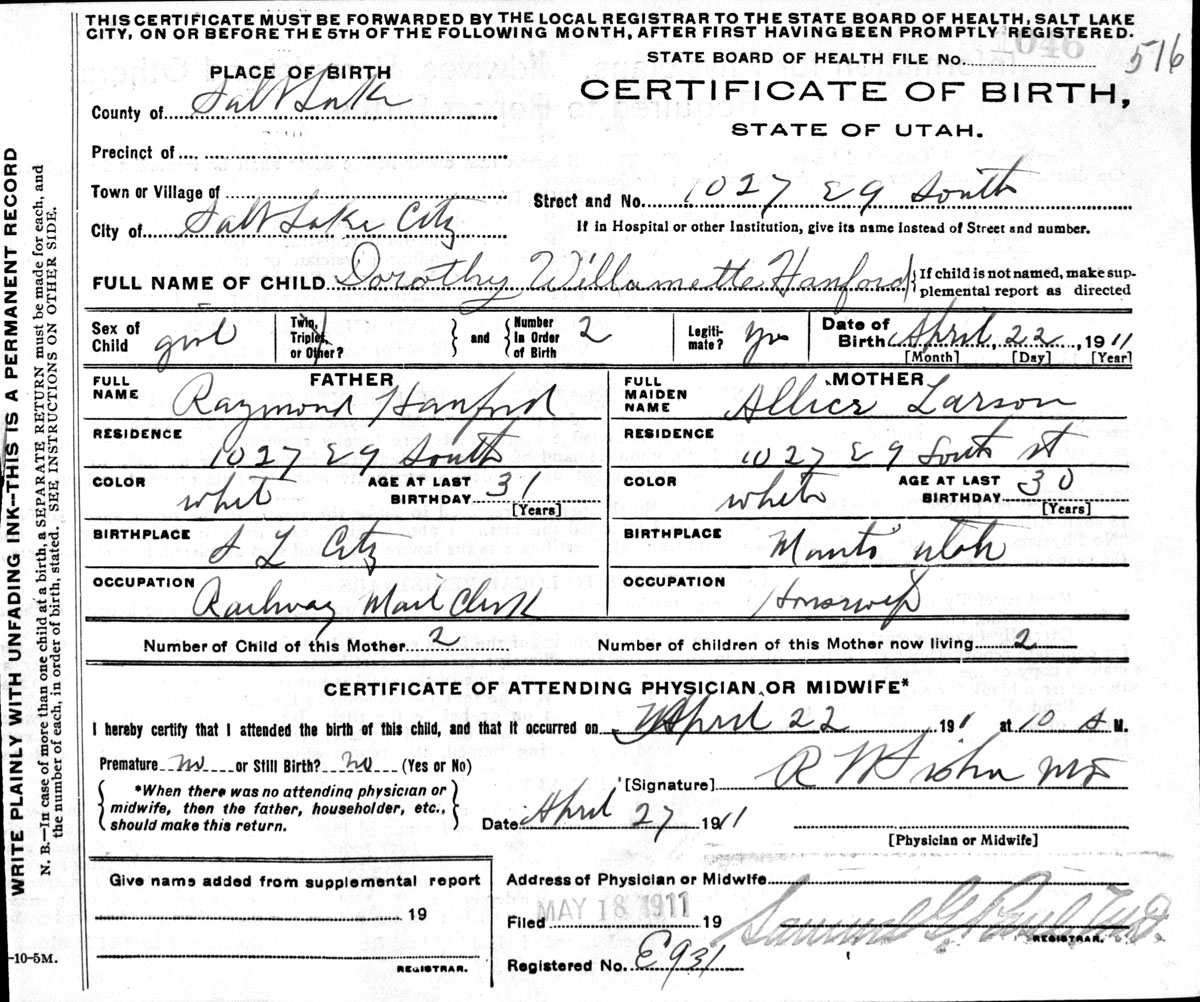 THIS CERTIFICATE MUST BE FORWARDED BY THE LOCAL REGISTRAR TO THE STATE BOARD OF HEALTH, SALT LAKE
CITY, ON OR BEFORE THE 5TH OF THE FOLLOWING MONTH, AFTER FIRST HAVING BEEN PROMPTLY REGISTERED.
STATE BOARD OF HEALTH FILE No. 516
PLACE OF BIRTH
CERTIFICATE OF BIRTH,
County of Salt Lake
STATE OF UTAH.
Precinct of
Town or Village of
Street and No. 1027 E 9 South
City of Salt Lake City
If in Hospital or other Institution, give its name instead of Street and number.
FULL NAME OF CHILD Dorothy Willamette Hanford
If child is not named, make sup-
plemental report as directed
Sex of Child girl
Twin, Triplet, or Other?
and
Number In Order of Birth 2
Legiti-mate? yes
Date of Birth April 22, 1911
[Month] [Day] [Year]
FATHER
FULL NAME Raymond Hanford
RESIDENCE 1027 E 9 South
COLOR white
AGE AT LAST BIRTHDAY 31
[Years]
BIRTHPLACE S L City
OCCUPATION Railway Mail Clerk
MOTHER
FULL MAIDEN NAME Allice Larson
RESIDENCE 1027 E 9 South st
COLOR white
AGE AT LAST BIRTHDAY 30
[Years]
BIRTHPLACE Manti utah
OCCUPATION Housewife
Number of Child of this Mother 2
Number of children of this Mother now living 2
CERTIFICATE OF ATTENDING PHYSICIAN OR MIDWIFE*
I hereby certify that I attended the birth of this child, and that it occurred on April 22 1911 at 10 A M.
Premature no or Still Birth? no (Yes or No)
*When there was no attending physician or
midwife, then the father, householder, etc.,
should make this return.
[Signature] R W
Date April 27 1911
[Physician or Midwife]
Give name added from supplemental report
19
REGISTRAR.
Address of Physician or Midwife
Filed MAY 18 1911 19
Samuel G Paul M.D.
REGISTRAR.
Registered No. E931
-10-5M.
WRITE PLAINLY WITH UNFADING INK—THIS IS A PERMANENT RECORD
N. B.—In case of more than one child at a birth, a SEPARATE RETURN must be made for each, and
the number of each, in order of birth, stated. SEE INSTRUCTIONS ON OTHER SIDE.